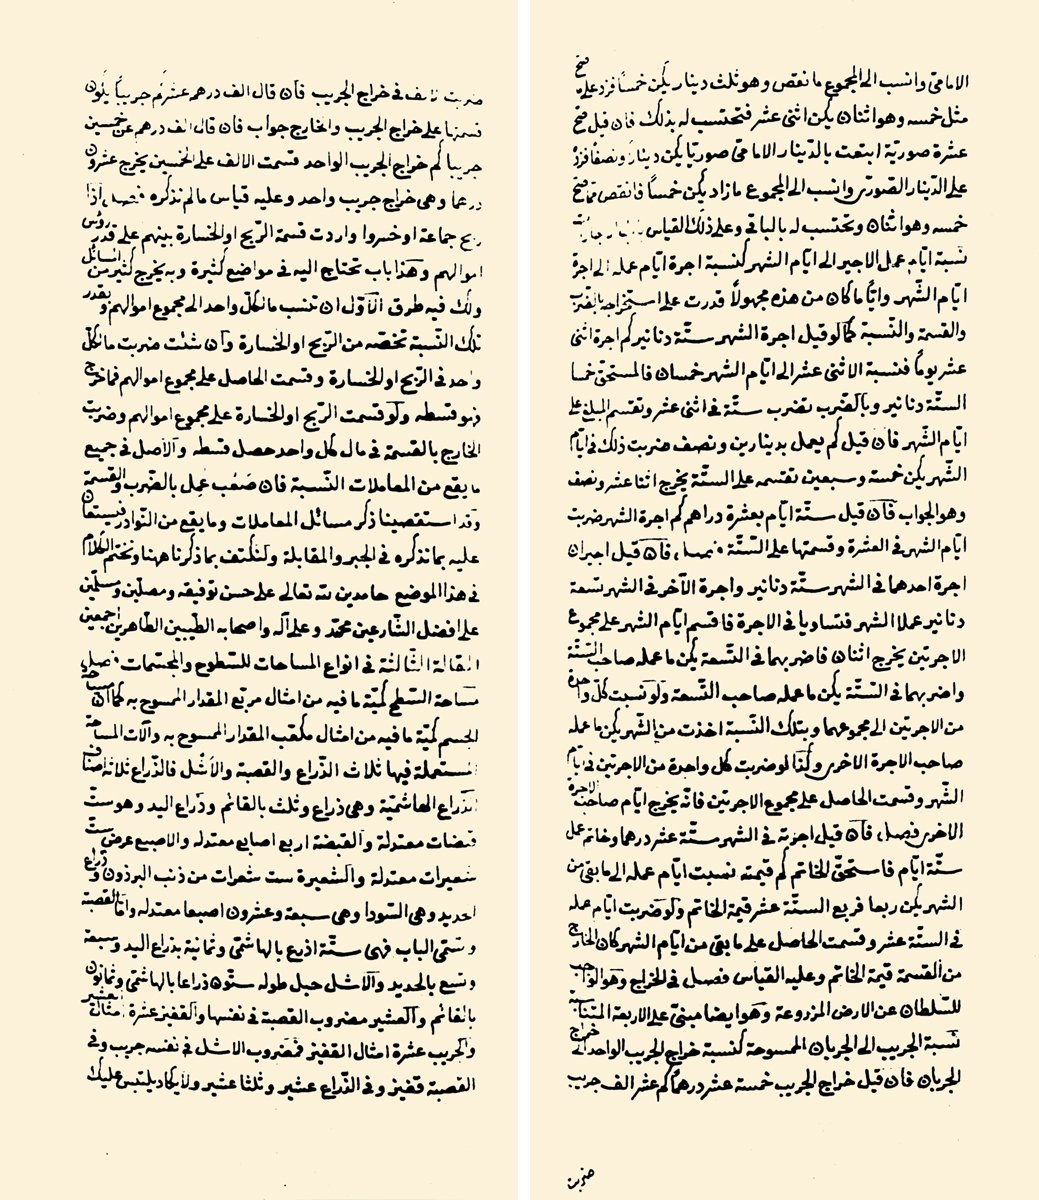 الامامىّ وانسب الى المجموع ما نقص وهو ثلث دينار يكن خمسًا فزد على صح
مثل خمسه وهو اثنان يكن اثنى عشر فتحتسب له بذلك فان قيل صح
عشرة صوريّة ابتعت بالدّينار الامامىّ صوريّا يكن دينارً ونصفًا فزد
على الدّينار الصّورىّ وانسب الى المجموع ما زاد يكن خمسًا فانقص ممّا صح
خمسه وهو اثنان وتحتسب له بالباقى وعلى ذلك القياس
نسبة ايّام عمل الاجير الى ايّام الشهر كنسبة اجرة ايّام عمله الى اجرة
ايّام الشّهر وايًّا ما كان من هذه مجهولًا قدرت على استخراجه بالضّرب
والقسمة والنّسبة كما لو قيل اجرة الشهر ستّة دنانير كم اجرة اثنى
عشر يومًا فنسبة الاثنى عشر الى ايّام الشهر خمسان فالمستحقّ خمسا
الستّة دنانير وبالضّرب تضرب ستّة فى اثنى عشر وتقسم المبلغ على
ايّام الشّهر فان قيل كم يعمل بدينارين ونصف ضربت ذلك فى ايّام
الشّهر يكن خمسة وسبعين تقسمه على الستّة يخرج اثنا عشر ونصف
وهو الجواب فان قيل ستّة ايّام بعشرة دراهم كم اجرة الشهر ضربت
ايّام الشهر فى العشرة وقسمتها على الستّة فصل فان قيل اجيران
اجرة احدهما فى الشهر ستّة دنانير واجرة الآخر فى الشهر تسعة
دنانير عملا الشهر فتساويا فى الاجرة فاقسم ايّام الشهر على مجموع
الاجرتين يخرج اثنان فاضربهما فى التّسعة يكن ما عمله صاحب الستّة
واضربهما فى الستّة يكن ما عمله صاحب التّسعة ولو نسبت كلّ واحدة
من الاجرتين الى مجموعهما وبتلك النّسبة اخذت من الشّهر يكن ما عمله
صاحب الاجرة الاخرى وكذا لو ضربت كل واحدة من الاجرتين فى ايّام
الشّهر وقسمت الحاصل على مجموع الاجرتين فانّه يخرج ايّام صاحب الاجرة
الاخرى فصل فان قيل اجرته فى الشهر ستّة عشر درهما وخاتم عمل
ستّة ايّام فاستحقّ الخاتم كم قيمته نسبت ايّام عمله الى ما بقى من
الشهر يكن ربعا فربع السّتة عشر قيمة الخاتم ولو ضربت ايّام عمله
فى الستّة عشر وقسمت الحاصل على ما بقى من ايّام الشهر كان الخارج
من القسمة قيمة الخاتم وعليه القياس فصل فى الخراج وهو الواجب
للسّلطان عن الارض المزروعة وهو ايضا مبنىّ على الاربعة المتناسبة
نسبة الجريب الى الجربان الممسوحة كنسبة خراج الجريب الواحد الى خراج
الجربان فان قيل خراج الجريب خمسة عشر درهمًا كم عشر الف جريب
ضربت
ضربت فى خراج الجريب فان قال الف درهم عشر كم جريبًا يكون
قسمتها على خراج الجريب والخارج جواب فان قال الف درهم عن خمسين
جريبا كم خراج الجريب الواحد قسمت الالف على الخمسين يخرج عشرون
درهما وهى خراج جريب واحد وعليه قياس ما لم نذكره فصل اذا
ربح جماعة او خسروا واردت قسمة الرّبح او الخسارة بينهم على قدر رؤس
اموالهم وهذا باب تحتاج اليه فى مواضع كثيرة وبه يخرج كثير من المسائل
ولك فيه طرق الاوّل ان تنسب ما لكلّ واحد الى مجموع اموالهم وبقدر
تلك النّسبة تخصّه من الرّبح او الخسارة وان شئت ضربت ما لكلّ
واحد فى الرّبح او الخسارة وقسمت الحاصل على مجموع اموالهم فما خرج
فهو قسطه ولو قسمت الرّبح او الخسارة على مجموع اموالهم وضربت
الخارج بالقسمة فى مال كل واحد حصل قسطه والاصل فى جميع
ما يقع من المعاملات النّسبة فان صعُب عُمِل بالضّرب والقسمة
وقد استقصينا ذكر مسائل المعاملات وما يقع من النّوادر فيستعان
عليه بما نذكره فى الجبر والمقابلة ولنكتف بما ذكرناه ههنا ونختم الكلام
فى هذا الموضع حامدين لله تعالى على حسن توفيقه ومصلّين ومسلّمين
على افضل الشّارعين محمّد وعلى آله واصحابه الطّيّبين الطّاهرين اجمعين
المقالة الثّالثة فى انواع المساحات للسّطوح والمجسّمات فصل
مساحة السّطح كميّة ما فيه من امثال مربّع المقدار الممسوح به كما ان مساحة
الجسم كميّة ما فيه من امثال مكعّب المقدار الممسوح به وآلات المساحة
المستعملة فيها ثلاث الذّراع والقصبة والأشل فالذّراع ثلاثة اصناف
الذّراع الهاشميّة وهى ذراع وثلث بالقائم وذراع اليد وهو ستّ
قبضات معتدلة والقبضة اربع اصابع معتدله والاصبع عرض ستّ
شعيرات معتدلة والشعيرة ست شعرات من ذنب البرذون وذراع
الحديد وهى السّودا وهى سبعة وعشرون اصبعا معتدله وامّا القصبة
وتسمّى الباب فهى ستّة اذرع بالهاشمى وثمانية بذراع اليد وسبعة
وتسع بالحديد والاشل حبل طوله ستّون ذراعا بالهاشمّى وثمانون
بالقائم والعشير مضروب القصبة فى نفسها والقفيز عشرة امثال العشير
والجريب عشرة امثال القفيز فمضروب الاشل فى نفسه جريب وفى
القصبة قفيز وفى الذّراع عشير وثلثا عشير ولا يكاد يلتبس عليك